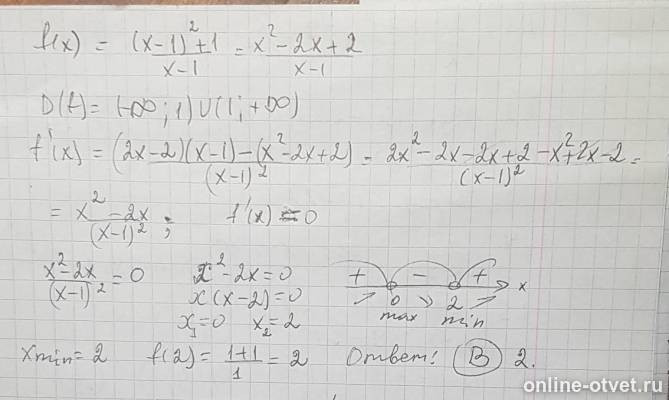 f(x) = ((x-1)²+1)/(x-1) = (x²-2x+2)/(x-1)
D(f) = (-∞; 1) ∪ (1; +∞)
f'(x) = ((2x-2)(x-1)-(x²-2x+2))/(x-1)² = (2x²-2x-2x+2-x²+2x-2)/(x-1)² =
= (x²-2x)/(x-1)² ; f'(x) = 0
(x²-2x)/(x-1)² = 0 x²-2x=0 + - + x
x(x-2)=0 0 2
x₁=0 x₂=2 max min
xmin = 2 f(2) = (1+1)/1 = 2 Ответ: В 2.
online-otvet.ru